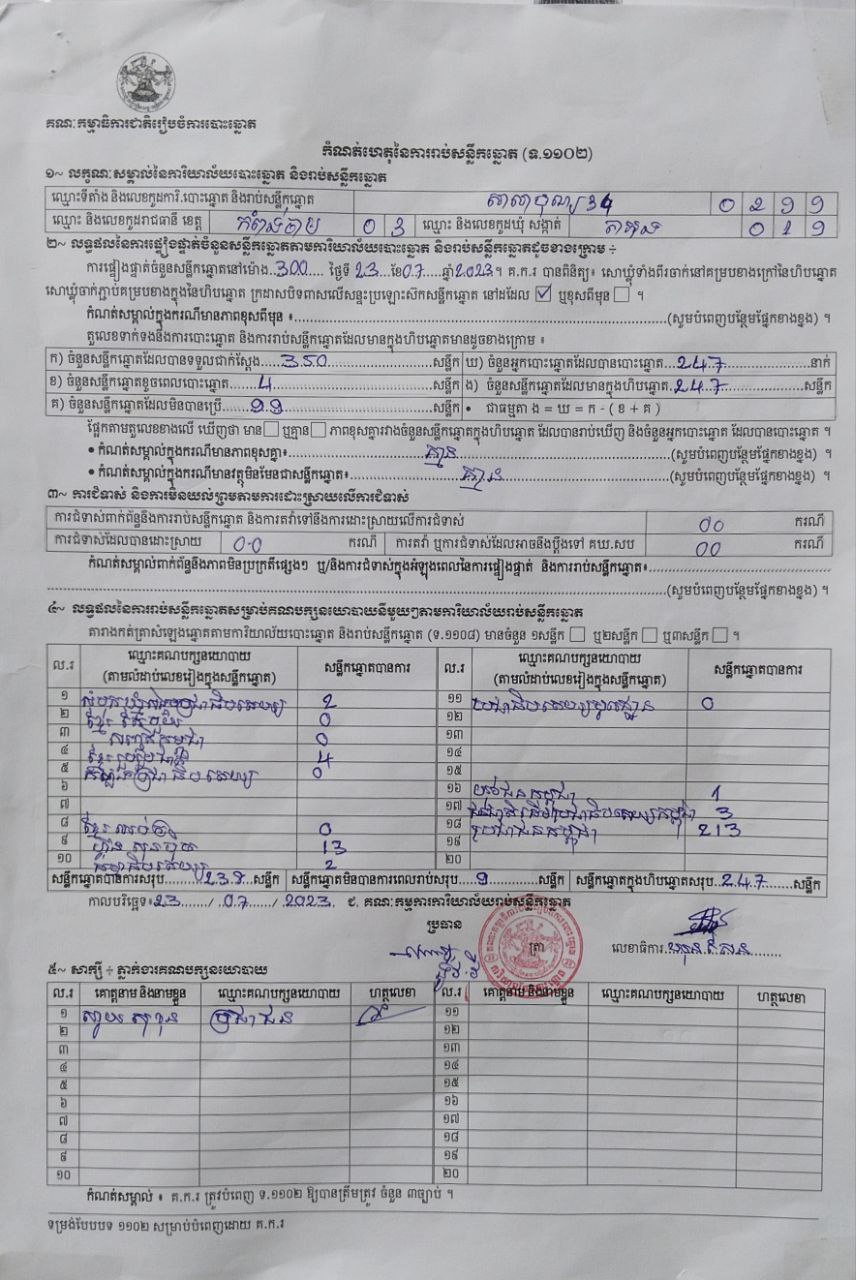 គណៈកម្មាធិការជាតិរៀបចំការបោះឆ្នោត
កំណត់ហេតុនៃការរាប់សន្លឹកឆ្នោត (ទ.១១០២)
១~ លក្ខណៈសម្គាល់នៃការិយាល័យបោះឆ្នោត និងរាប់សន្លឹកឆ្នោត
ឈ្មោះទីតាំង និងលេខកូដការិ.បោះឆ្នោត និងរាប់សន្លឹកឆ្នោត 0299
ឈ្មោះ និងលេខកូដរាជធានី ខេត្ត កំពង់ចាម 03 ឈ្មោះ និងលេខកូដឃុំ សង្កាត់ 019
២~ លទ្ធផលនៃការផ្ទៀងផ្ទាត់ចំនួនសន្លឹកឆ្នោតតាមការិយាល័យបោះឆ្នោត និងរាប់សន្លឹកឆ្នោតដូចខាងក្រោម ÷
ការផ្ទៀងផ្ទាត់ចំនួនសន្លឹកឆ្នោតនៅម៉ោង..300..... ថ្ងៃទី 23 ..ខែ07.....ឆ្នាំ2023។ គ.ក.រ បានពិនិត្យ៖ សោឃ្លុំទាំងពីរចាក់នៅគម្របខាងក្រៅនៃហិបឆ្នោត
សោឃ្លុំចាក់ភ្ជាប់គម្របខាងក្នុងនៃហិបឆ្នោត ក្រដាសបិទពាសលើសន្ទះប្រឡោះស៊កសន្លឹកឆ្នោត នៅដដែល ☑ ឬខុសពីមុន ☐ ។
កំណត់សម្គាល់ក្នុងករណីមានភាពខុសពីមុន ៖.....(សូមបំពេញបន្ថែមផ្នែកខាងខ្នង) ។
តួលេខទាក់ទងនឹងការបោះឆ្នោត និងការរាប់សន្លឹកឆ្នោតដែលមានក្នុងហិបឆ្នោតមានដូចខាងក្រោម ៖
ក) ចំនួនសន្លឹកឆ្នោតដែលបានទទួលជាក់ស្តែង.....350.....សន្លឹក ឃ) ចំនួនអ្នកបោះឆ្នោតដែលបានបោះឆ្នោត..247.....នាក់
ខ) ចំនួនសន្លឹកឆ្នោតខូចពេលបោះឆ្នោត.....4.....សន្លឹក ង) ចំនួនសន្លឹកឆ្នោតដែលមានក្នុងហិបឆ្នោត.247.....សន្លឹក
គ) ចំនួនសន្លឹកឆ្នោតដែលមិនបានប្រើ.....99.....សន្លឹក • ជាធម្មតា ង = ឃ = ក - ( ខ + គ )
ផ្អែកតាមតួលេខខាងលើ ឃើញថា មាន ☐ ឬគ្មាន ☐ ភាពខុសគ្នារវាងចំនួនសន្លឹកឆ្នោតក្នុងហិបឆ្នោត ដែលបានរាប់ឃើញ និងចំនួនអ្នកបោះឆ្នោត ដែលបានបោះឆ្នោត ។
• កំណត់សម្គាល់ក្នុងករណីមានភាពខុសគ្នា៖.....គ្មាន.....(សូមបំពេញបន្ថែមផ្នែកខាងខ្នង) ។
• កំណត់សម្គាល់ក្នុងករណីមានវត្ថុមិនមែនជាសន្លឹកឆ្នោត៖.....គ្មាន.....(សូមបំពេញបន្ថែមផ្នែកខាងខ្នង) ។
៣~ ការជំទាស់ និងការមិនយល់ព្រមតាមការដោះស្រាយលើការជំទាស់
ការជំទាស់ពាក់ព័ន្ធនឹងការរាប់សន្លឹកឆ្នោត និងការតវ៉ាទៅនឹងការដោះស្រាយលើការជំទាស់ 00 ករណី
ការជំទាស់ដែលបានដោះស្រាយ 00 ករណី ការតវ៉ា ឬការជំទាស់ដែលអាចនឹងប្តឹងទៅ គឃ.សប 00 ករណី
កំណត់សម្គាល់ពាក់ព័ន្ធនឹងភាពមិនប្រក្រតីផ្សេងៗ ឬ/និងការជំទាស់ក្នុងអំឡុងពេលនៃការផ្ទៀងផ្ទាត់ និងការរាប់សន្លឹកឆ្នោត៖.....
.....(សូមបំពេញបន្ថែមផ្នែកខាងខ្នង) ។
៤~ លទ្ធផលនៃការរាប់សន្លឹកឆ្នោតសម្រាប់គណបក្សនយោបាយនីមួយៗតាមការិយាល័យរាប់សន្លឹកឆ្នោត
តារាងកត់ត្រាសំឡេងឆ្នោតតាមការិយាល័យបោះឆ្នោត និងរាប់សន្លឹកឆ្នោត (ទ.១១០៨) មានចំនួន ១សន្លឹក ☐ ឬ២សន្លឹក ☐ ឬ៣សន្លឹក ☐ ។
ល.រ ឈ្មោះគណបក្សនយោបាយ (តាមលំដាប់លេខរៀងក្នុងសន្លឹកឆ្នោត) សន្លឹកឆ្នោតបានការ ល.រ ឈ្មោះគណបក្សនយោបាយ (តាមលំដាប់លេខរៀងក្នុងសន្លឹកឆ្នោត) សន្លឹកឆ្នោតបានការ
១ សំបុកឃ្មុំសង្គមប្រជាធិបតេយ្យ 2 ១១ 0
២ ខ្មែរ 0 ១២
៣ កម្ពុជា 0 ១៣
៤ ខ្មែររួបរួមជាតិ 4 ១៤
៥ ប្រជាធិបតេយ្យ 0 ១៥
៦ ១៦ យុវជនកម្ពុជា 1
៧ ១៧ ប្រជាធិបតេយ្យកម្ពុជា 3
៨ ខ្មែរ 0 ១៨ ប្រជាជនកម្ពុជា 213
៩ ហ៊្វុនស៊ិនប៉ិច 13 ១៩
១០ ធម្មាធិបតេយ្យ 2 ២០
សន្លឹកឆ្នោតបានការសរុប.....238..សន្លឹក សន្លឹកឆ្នោតមិនបានការពេលរាប់សរុប.....9.....សន្លឹក សន្លឹកឆ្នោតក្នុងហិបឆ្នោតសរុប..247.....សន្លឹក
កាលបរិច្ឆេទ៖23....../..07....../..2023. ជ. គណៈកម្មការការិយាល័យរាប់សន្លឹកឆ្នោត
ប្រធាន
ត្រា
លេខាធិការ
៥~ សាក្សី ÷ ភ្នាក់ងារគណបក្សនយោបាយ
ល.រ គោត្តនាម និងនាមខ្លួន ឈ្មោះគណបក្សនយោបាយ ហត្ថលេខា ល.រ គោត្តនាម និងនាមខ្លួន ឈ្មោះគណបក្សនយោបាយ ហត្ថលេខា
១ ប្រជាជន ១១
២ ១២
៣ ១៣
៤ ១៤
៥ ១៥
៦ ១៦
៧ ១៧
៨ ១៨
៩ ១៩
១០ ២០
កំណត់សម្គាល់ ៖ គ.ក.រ ត្រូវបំពេញ ទ.១១០២ ឱ្យបានត្រឹមត្រូវ ចំនួន ៣ច្បាប់ ។
ទម្រង់បែបបទ ១១០២ សម្រាប់បំពេញដោយ គ.ក.រ